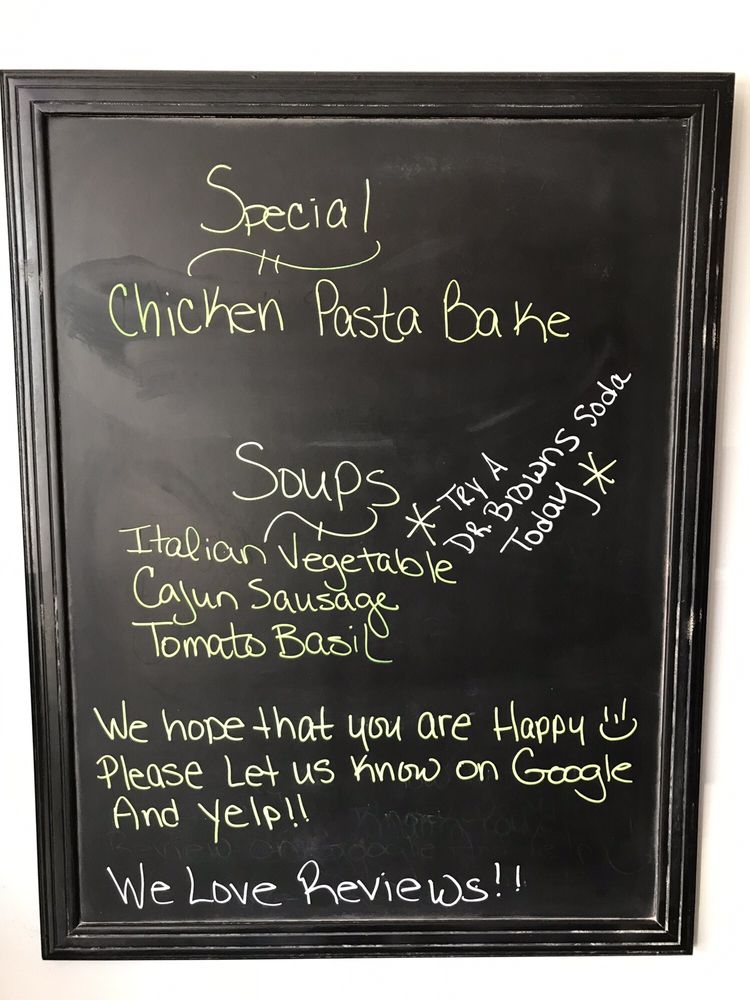 Special
Chicken Pasta Bake
Soups
* Try A
Dr. Browns Soda
Today *
Italian Vegetable
Cajun Sausage
Tomato Basil
We hope that you are Happy
Please Let us know on Google
And Yelp!!
We Love Reviews!!